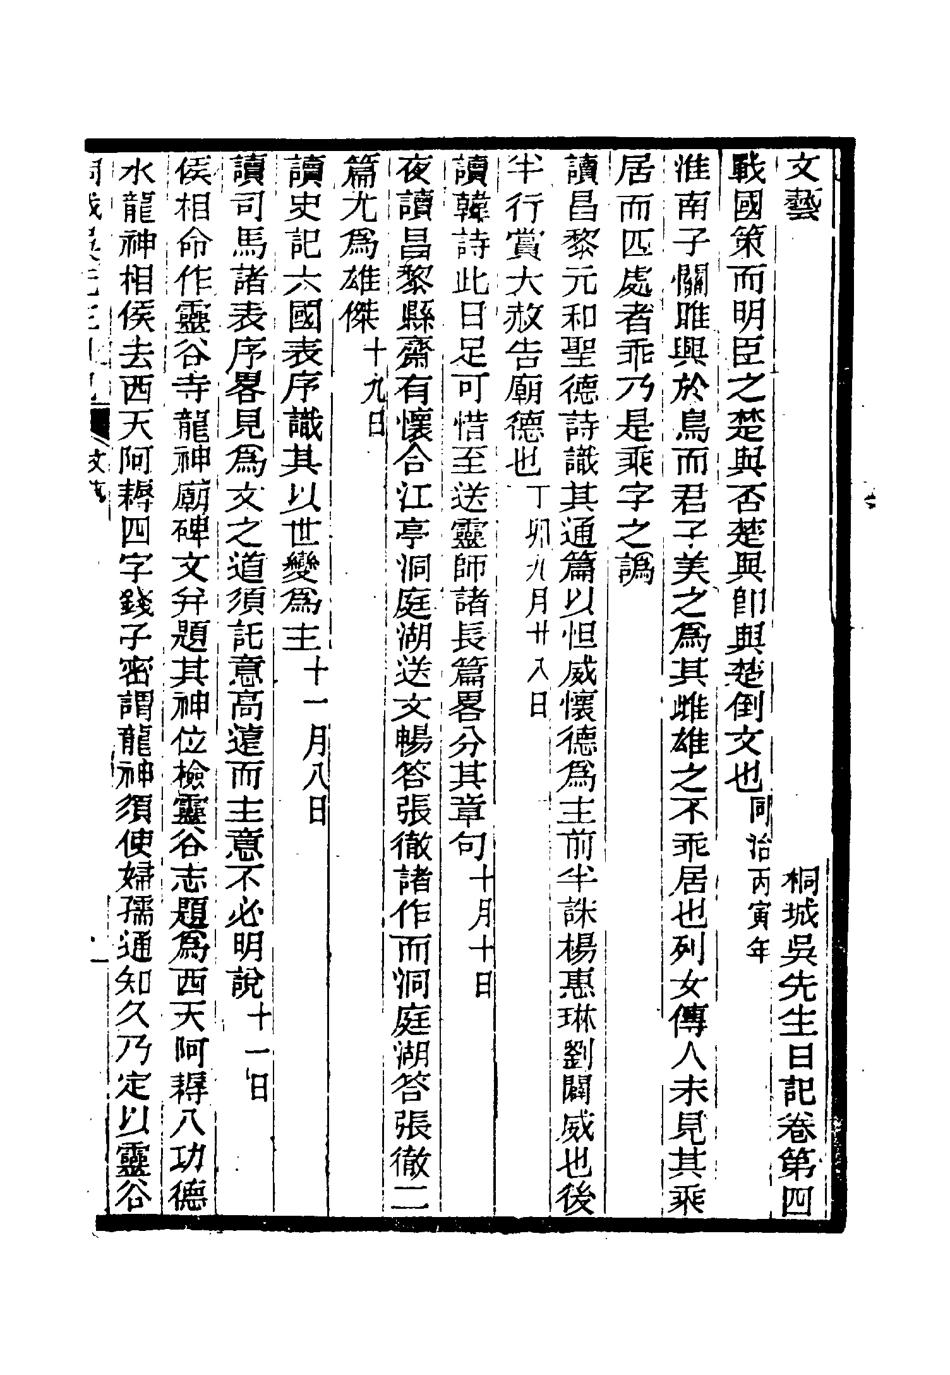 文藝　桐城吳先生日記卷第四
戰國策而明臣之楚與否楚與卽與楚倒文也同治丙寅年
淮南子關雎興於鳥而君子美之爲其雌雄之不乖居也列女傳人未見其乘
居而匹處者乖乃是乘字之譌
讀昌黎元和聖德詩識其通篇以怛威懷德爲主前半誅楊惠琳劉闢威也後
半行賞大赦告廟德也丁卯九月廿八日
讀韓詩此日足可惜至送靈師諸長篇畧分其章句十月十日
夜讀昌黎縣齋有懷合江亭洞庭湖送文暢答張徹諸作而洞庭湖答張徹二
篇尤爲雄傑十九日
讀史記六國表序識其以世變爲主十一月八日
讀司馬諸表序畧見爲文之道須託意高遠而主意不必明說十一日
侯相命作靈谷寺龍神廟碑文幷題其神位檢靈谷志題爲西天阿耨八功德
水龍神相侯去西天阿耨四字錢子密謂龍神須使婦孺通知久乃定以靈谷